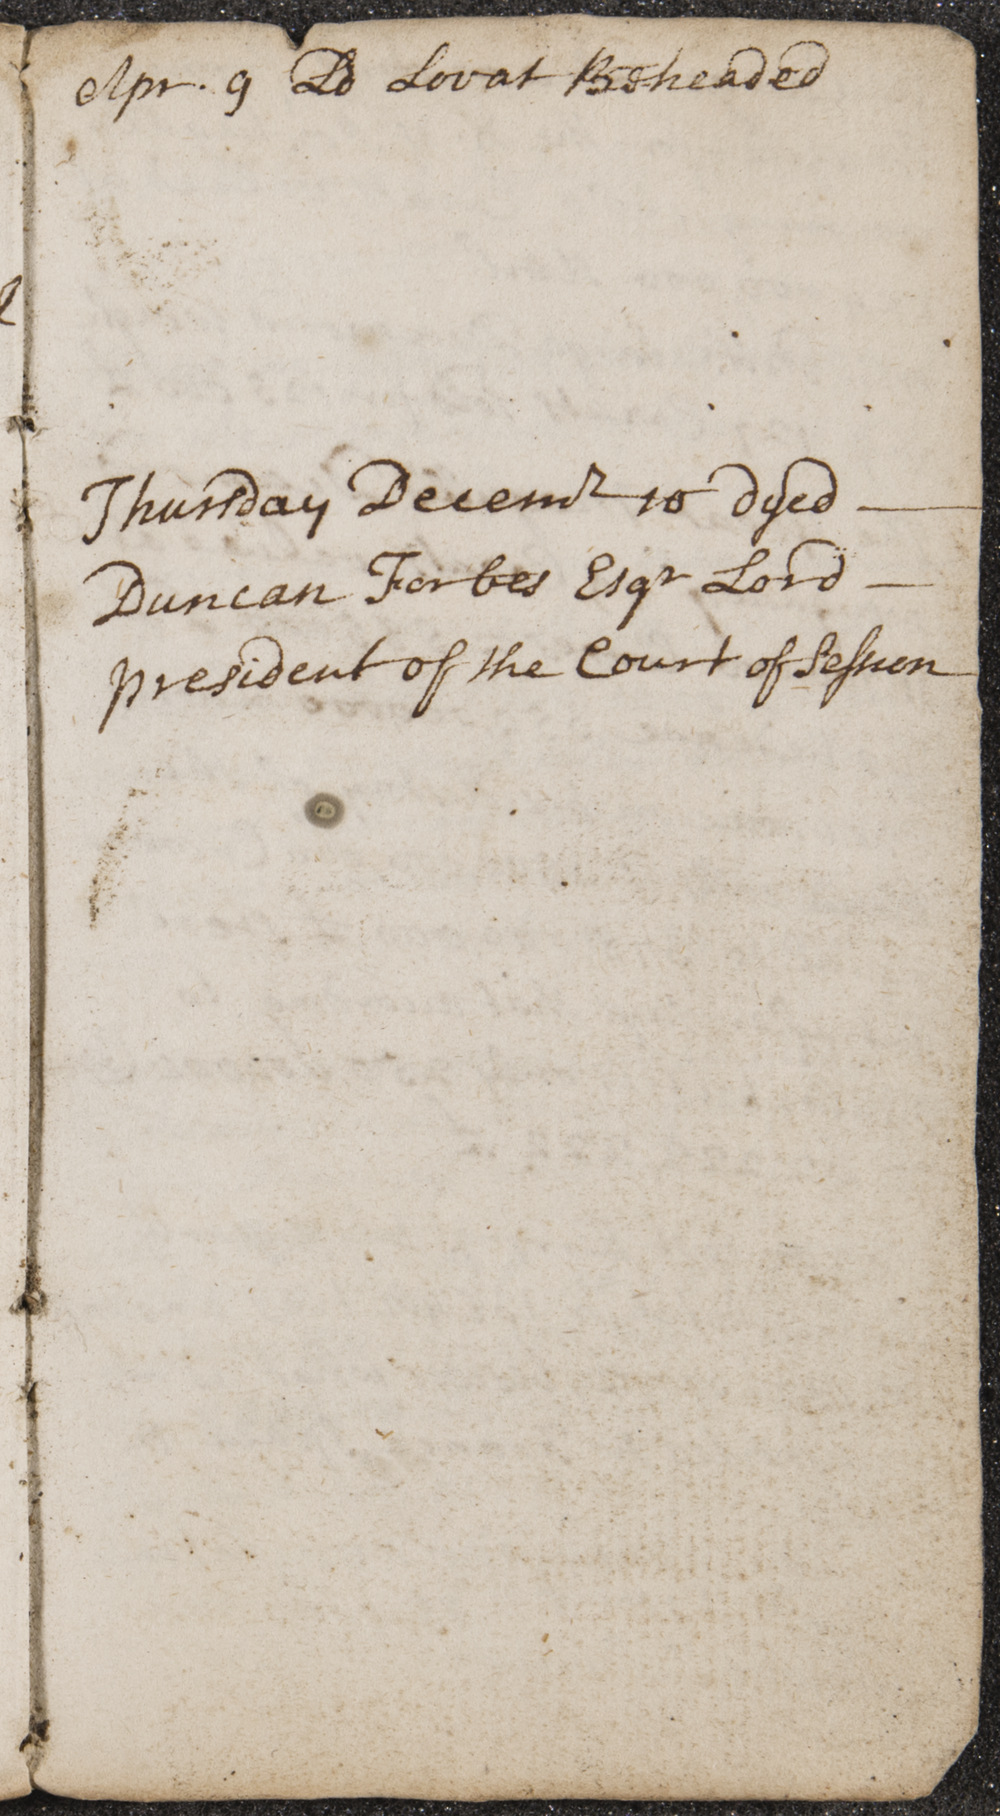 Apr. 9 Ld Lovat Beheaded
Thursday Decemr 10 dyed —
Duncan Forbes Esqr Lord —
president of the Court of Session